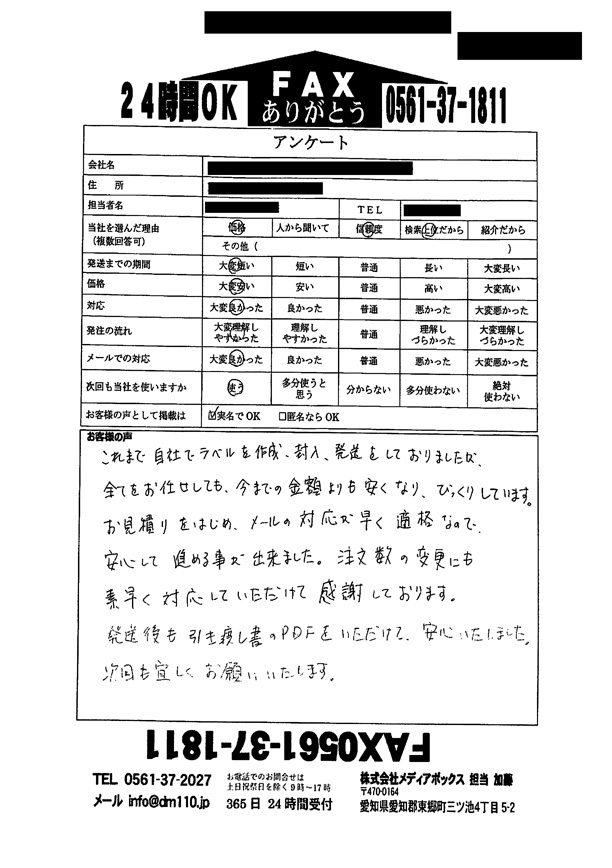 FAX
ありがとう
24時間OK
0561-37-1811
アンケート
会社名
住 所
担当者名 TEL
当社を選んだ理由 (複数回答可) 価格 人から聞いて 信頼度 検索上位だから 紹介だから
その他 ( )
発送までの期間 大変短い 短い 普通 長い 大変長い
価格 大変安い 安い 普通 高い 大変高い
対応 大変良かった 良かった 普通 悪かった 大変悪かった
発注の流れ 大変理解しやすかった 理解しやすかった 普通 理解しづらかった 大変理解しづらかった
メールでの対応 大変良かった 良かった 普通 悪かった 大変悪かった
次回も当社を使いますか 使う 多分使うと思う 分からない 多分使わない 絶対使わない
お客様の声として掲載は ☑実名でOK □匿名ならOK
お客様の声
これまで自社でラベルを作成、封入、発送をしておりましたが、
全てをお任せしても、今までの金額よりも安くなり、びっくりしています。
お見積りをはじめ、メールの対応が早く適格なので、
安心して進める事が出来ました。注文数の変更にも
素早く対応していただけて感謝しております。
発送後も引き渡し書のPDFをいただけて、安心いたしました。
次回も宜しくお願いいたします。
FAX0561-37-1811
TEL 0561-37-2027
メール info@dm110.jp
お電話でのお問合せは
土日祝祭日を除く9時～17時
365日 24時間受付
株式会社メディアボックス 担当 加藤
〒470-0164
愛知県愛知郡東郷町三ツ池4丁目5-2